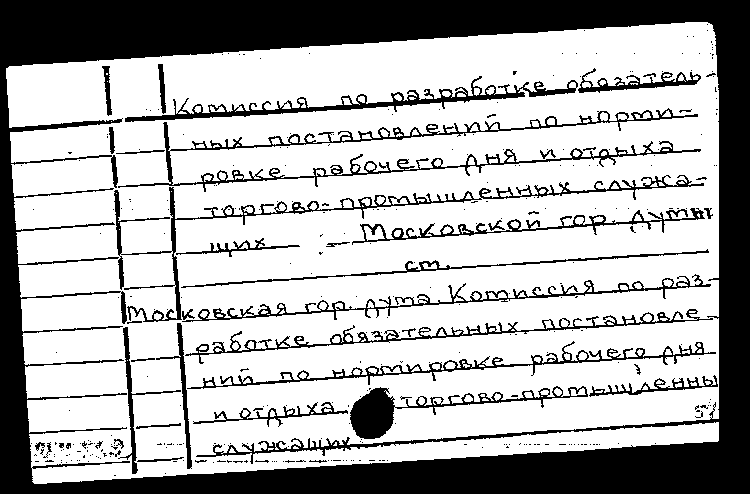 Комиссия по разработке обязатель-
ных постановлений по норми-
ровке рабочего дня и отдыха
торгово-промышленных служа-
щих — Московской гор. Думы
см.
Московская гор. Дума. Комиссия по раз-
работке обязательных постановле-
ний по нормировке рабочего дня
и отдыха торгово-промышленны
служащих.